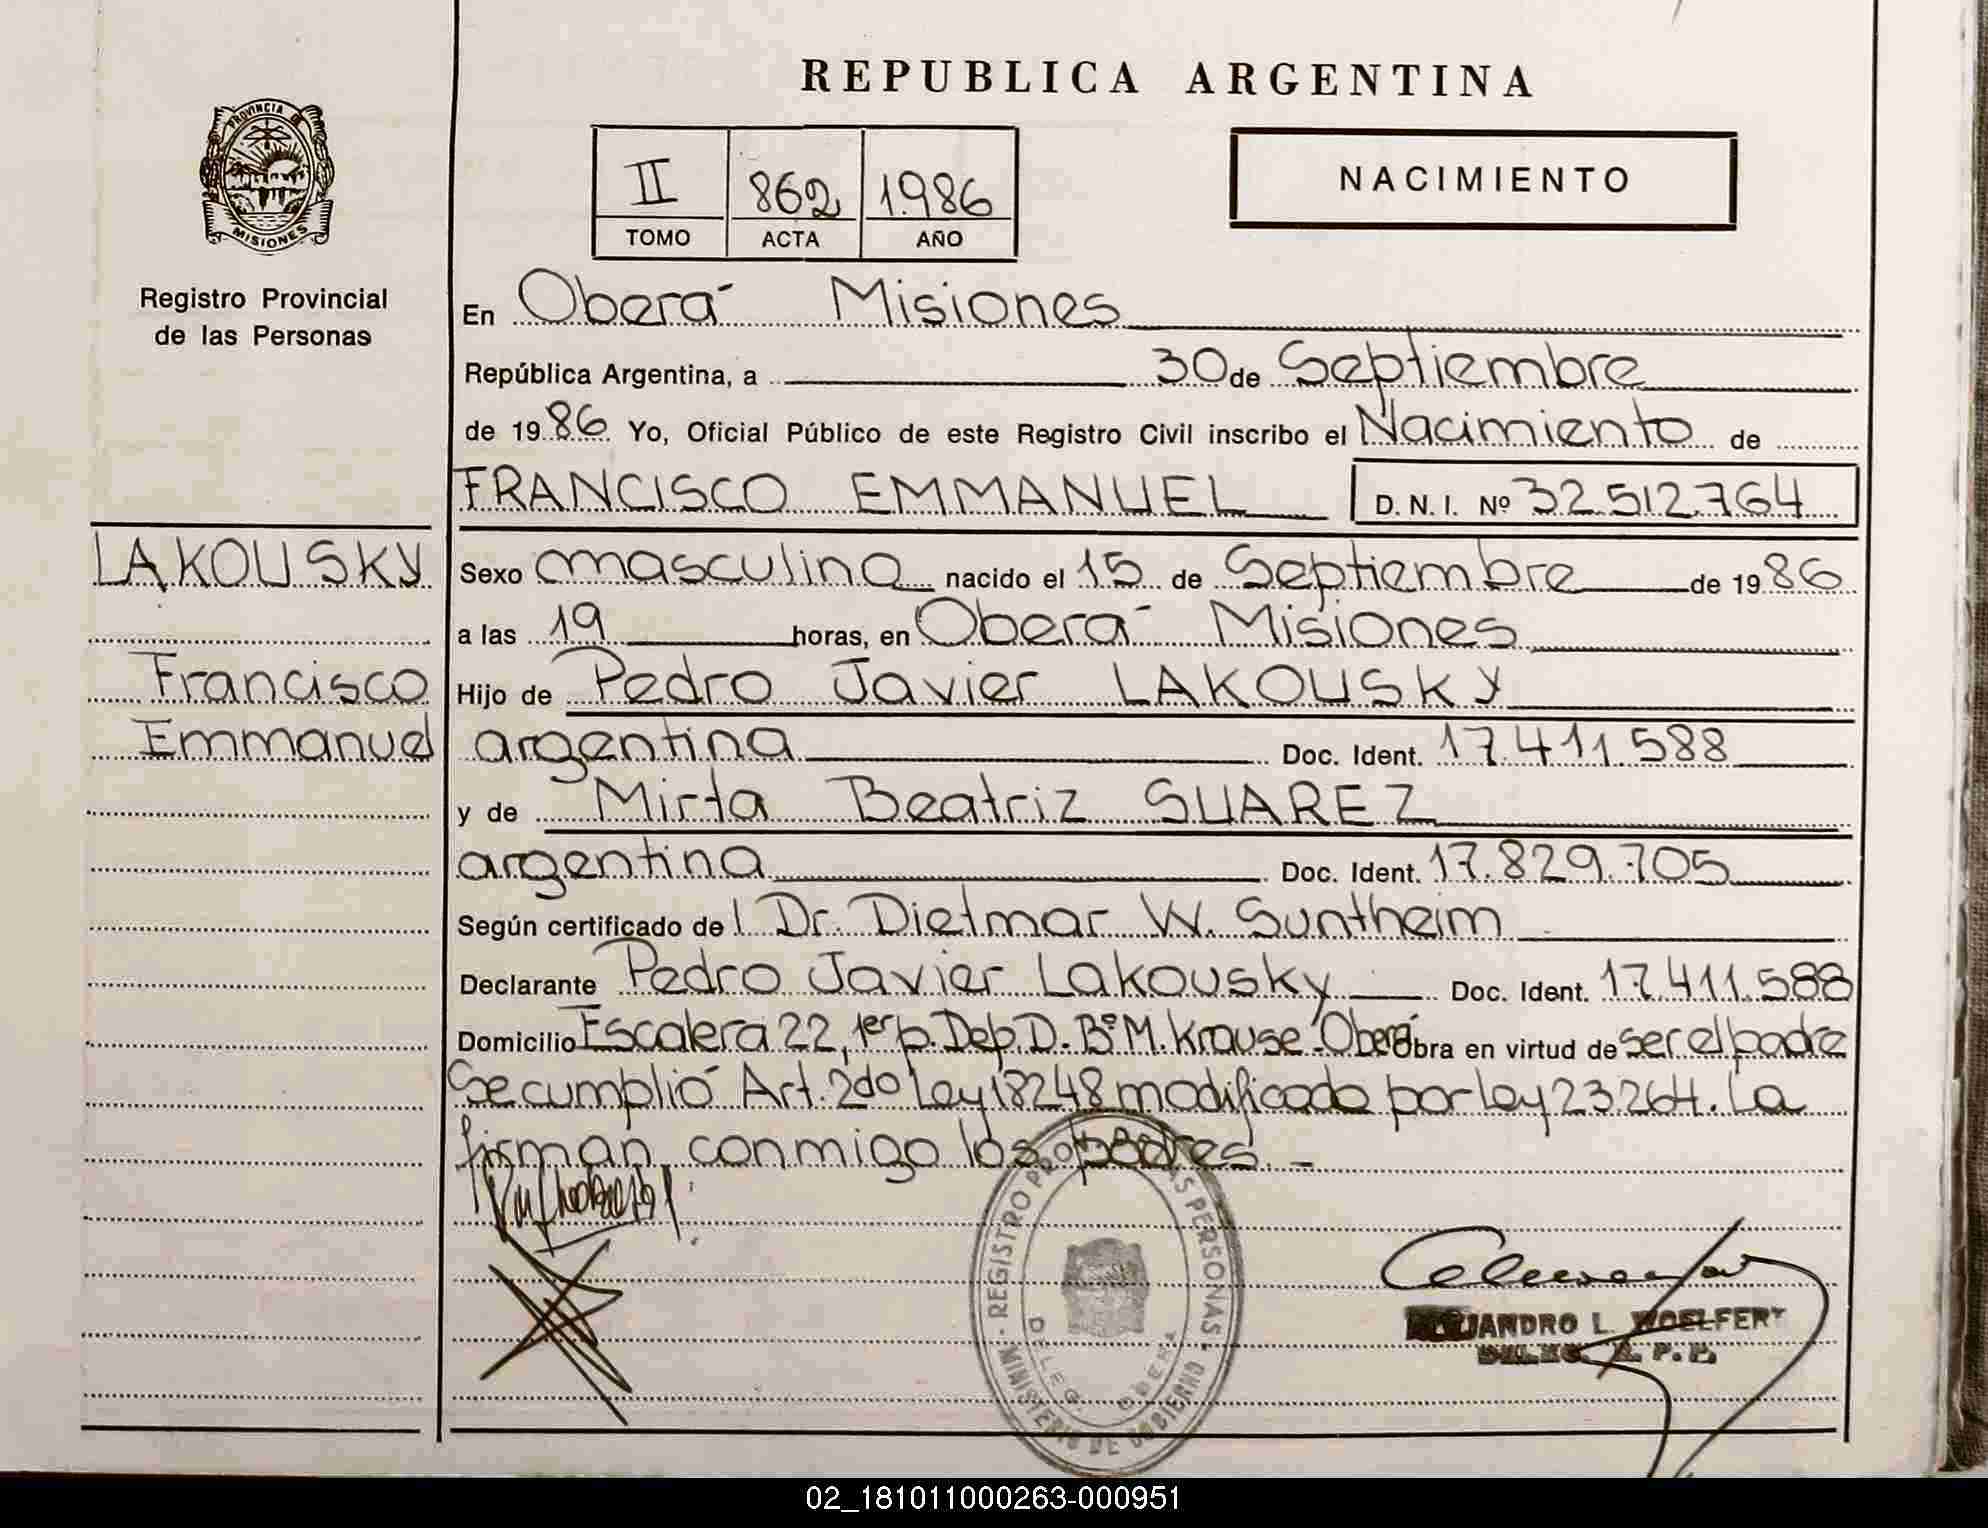 REPUBLICA ARGENTINA
PROVINCIA DE
MISIONES
II 862 1986
TOMO ACTA AÑO
NACIMIENTO
Registro Provincial
de las Personas
En Oberá Misiones
República Argentina, a 30 de Septiembre
de 1986 Yo, Oficial Público de este Registro Civil inscribo el Nacimiento de
FRANCISCO EMMANUEL D. N. I. Nº 32.512.764
LAKOUSKY
Francisco
Emmanuel
Sexo masculino nacido el 15 de Septiembre de 1986
a las 19 horas, en Oberá Misiones
Hijo de Pedro Javier LAKOUSKY
argentina Doc. Ident. 17.411.588
y de Mirta Beatriz SUAREZ
argentina Doc. Ident. 17.829.705
Según certificado de l Dr. Dietmar W. Suntheim
Declarante Pedro Javier Lakousky Doc. Ident. 17.411.588
Domicilio Escalera 22, 1er p. Dep. D. Bº M. Krause - Oberá Obra en virtud de ser el padre
Se cumplió Art. 2do Ley 18248 modificado por ley 23.264. La
firman conmigo los padres. -
REGISTRO PROVINCIAL DE LAS PERSONAS
MINISTERIO DE GOBIERNO
DELEG. OBERA
ALEJANDRO L. WOELFERT
DELEG. R. P. P.
02_181011000263-000951